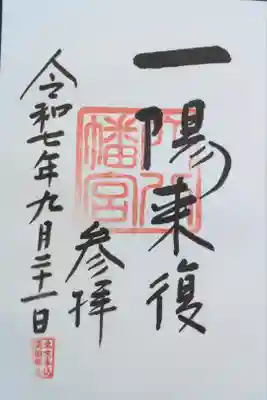 一陽来復
穴八幡宮
参拝
令和七年九月二十一日